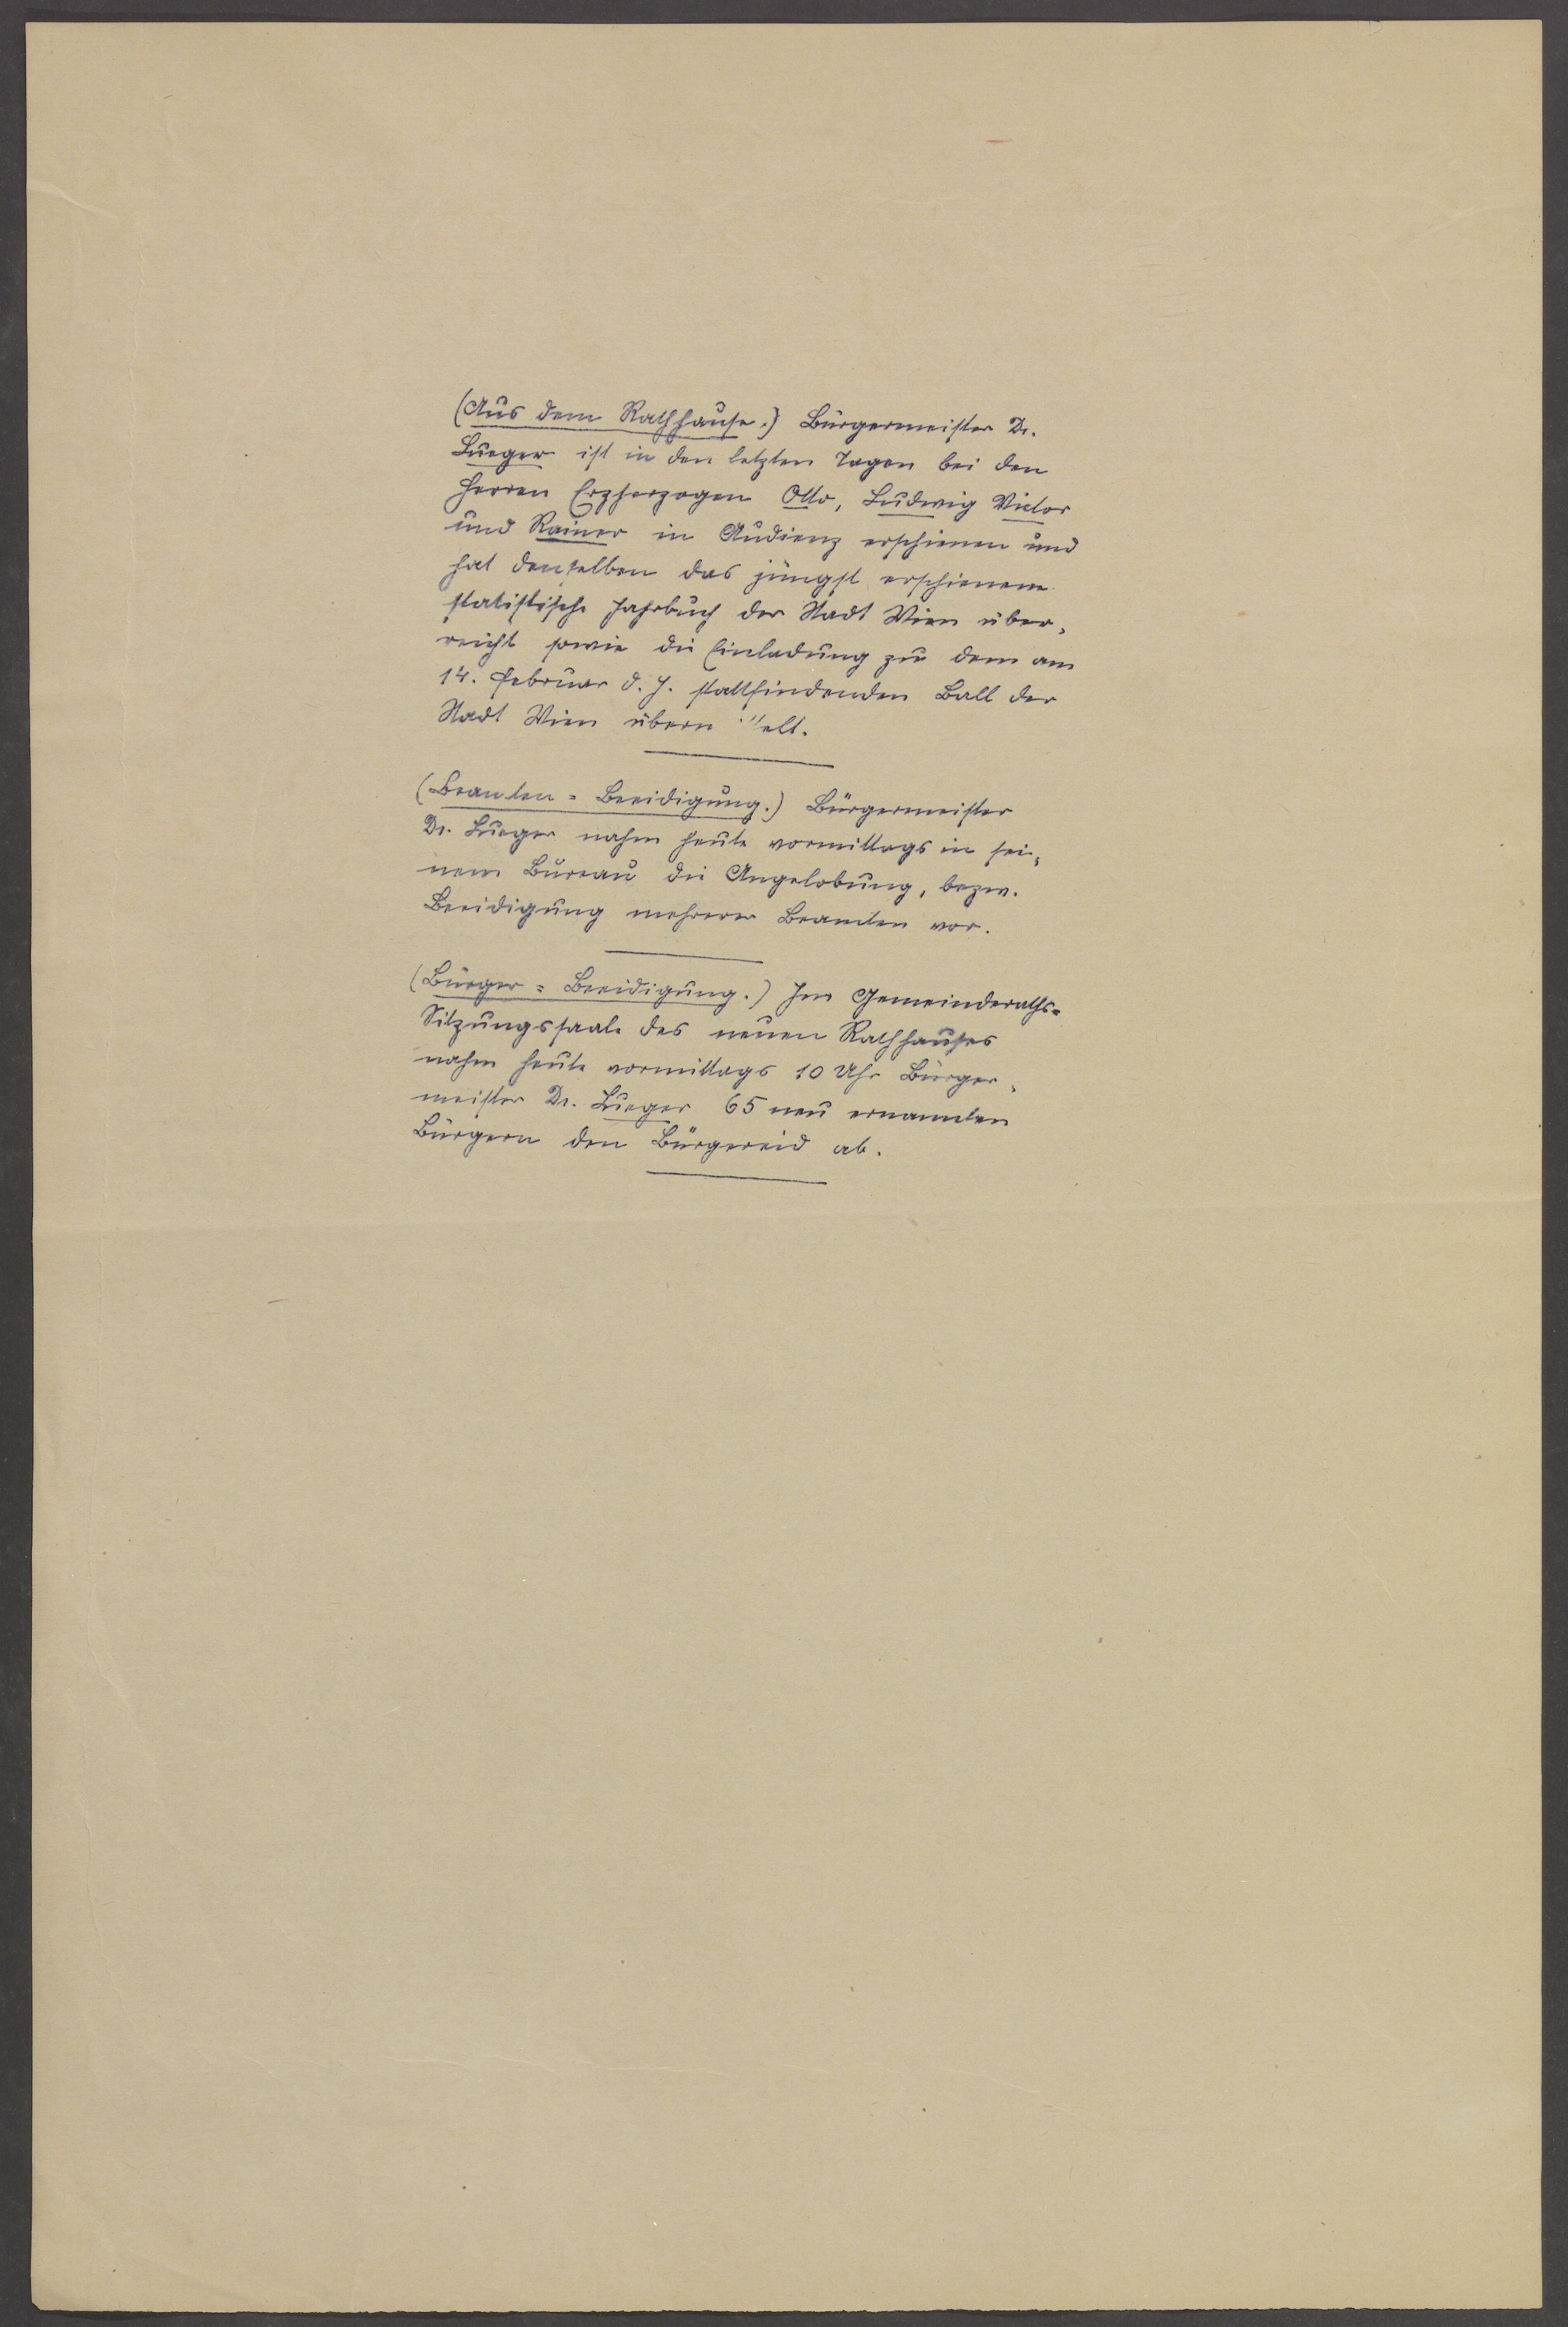 (Aus dem Rathhause.) Bürgermeister Dr.
Lueger ist in den letzten Tagen bei den
Herren Erzherzogen Otto, Ludwig Victor
und Rainer in Audienz erschienen und
hat denselben das jüngst erschienene
statistische Jahrbuch der Stadt Wien über-
reicht sowie die Einladung zu dem am
14. Februar d. J. stattfindenden Ball der
Stadt Wien
(Beamten-Beeidigung.) Bürgermeister
Dr. Lueger nahm heute vormittags in sei-
nem Bureau die Angelobung, bezw.
Beeidigung mehrerer Beamten vor.
(Bürger-Beeidigung.) Im Gemeinderaths-
Sitzungssaale des neuen Rathhauses
nahm heute vormittags 10 Uhr Bürger-
meister Dr. Lueger 65 neu ernannten
Bürgern den Bürgereid ab.